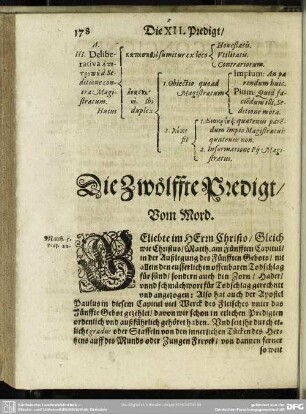 178 Die XII. Predigt/
A.
III. Delibe-
rativa
Seditione con-
tra Magi-
stratum.
Huius
sumitur ex loco
Honestatis.
Utilitatis.
Contrariorum.
ibi
duplex
1. Obiectio quoad
Magistratum
Impium: An pa-
rendum huic.
Pium: quid fa-
ciendum illi, Se-
ditione mota.
quatenus paren-
dum impio Magistratui:
quatenus non.
2. Informatione Pij Magi-
stratus.
Die Zwölffte Predigt/
Vom Mord.
Matth. 5.
vers. 22.
GEliebte im HErrn Christo/ Gleich
wie Christus/ Matth. am Fünfften Capitul/
in der Außlegung des Fünfften Gebots/ nit
allen den eusserlichen offenbaren Todtschlag
für sünd/ sondern auch den Zorn/ Hader/
vnnd schmachwort für Todtschlag gerechnet
vnd angezogen: Also hat auch der Apostel
Paulus in diesem Capitul viel Werck des Fleisches vnter das
Fünffte Gebot gezehlet/ davon wir schon in etlichen Predigten
ordenlich vnd außführlich gehöret haben. Vnd seit ihr durch et-
liche gradus oder Staffeln von den innerlichen Tücken des Her-
tzens auff des Munds oder Zungen Frevel/ von dannen ferner
so weit